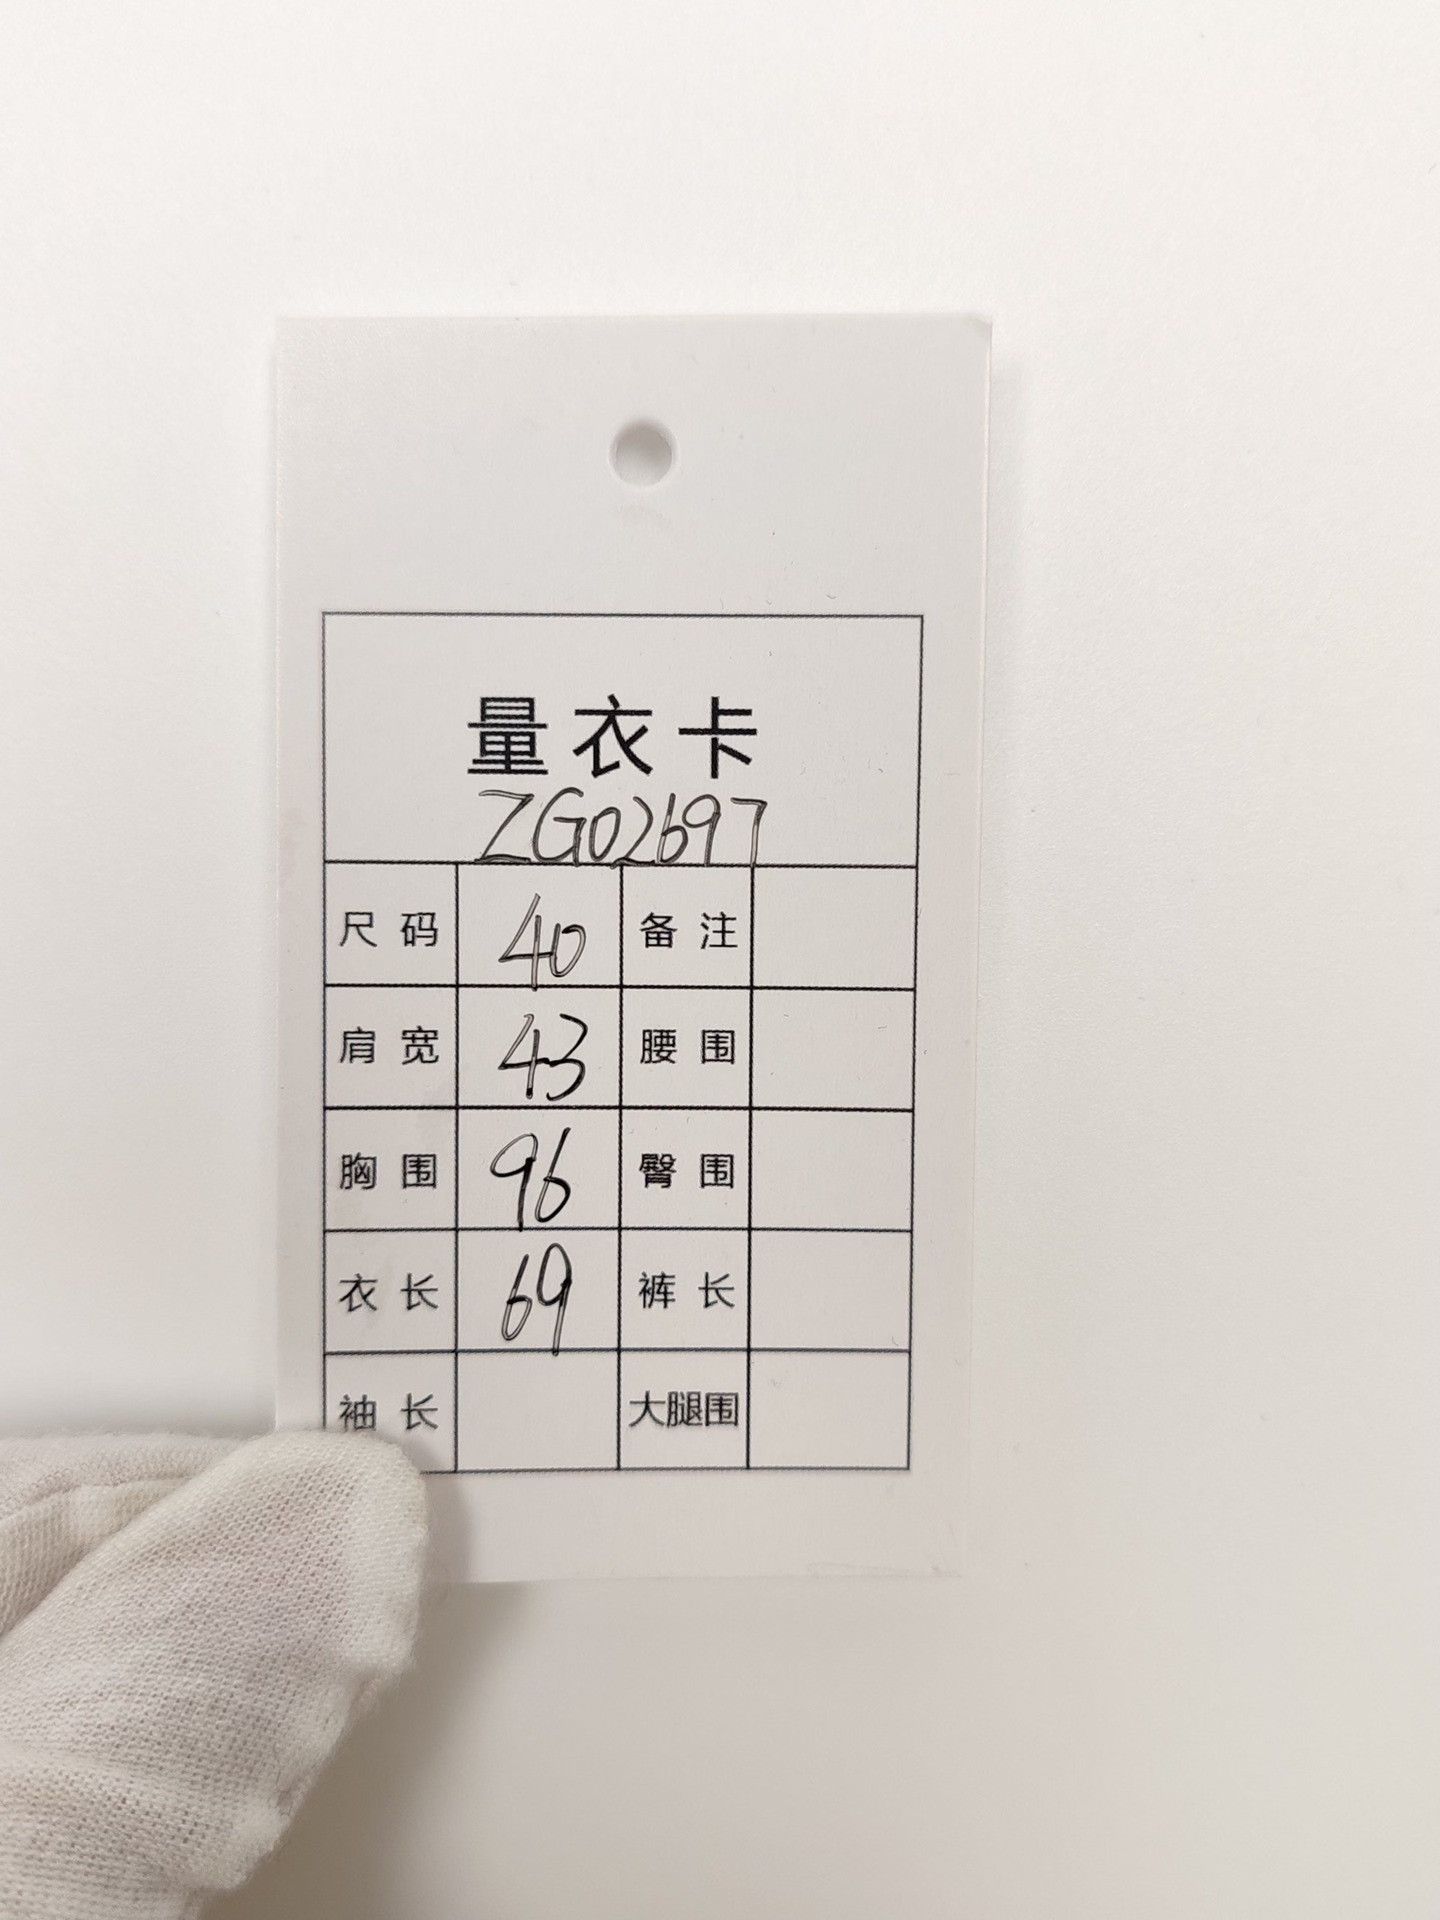 量衣卡
ZG02697
尺码 40 备注
肩宽 43 腰围
胸围 96 臀围
衣长 69 裤长
袖长 大腿围